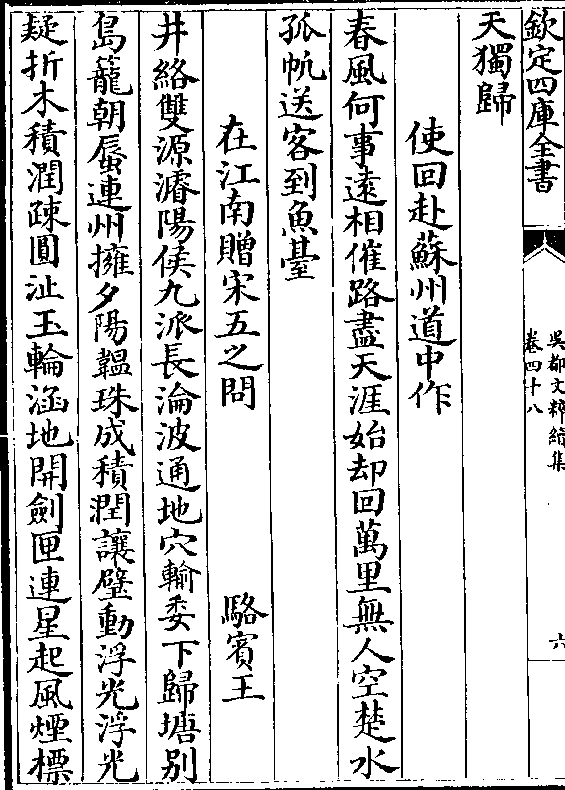 欽定四庫全書
吳都文粹續集
卷四十八
六
天獨歸
使回赴蘇州道中作
春風何事遠相催路盡天涯始却回萬里無人空楚水
孤帆送客到魚臺
在江南贈宋五之問
駱賓王
井絡雙源濬陽侯九派長淪波通地穴輸委下歸塘别
島籠朝蜃連州擁夕陽韞珠成積潤讓璧動浮光浮光
疑折水積潤疎圓沚玉輪涵地開劍匣連星起風煙標